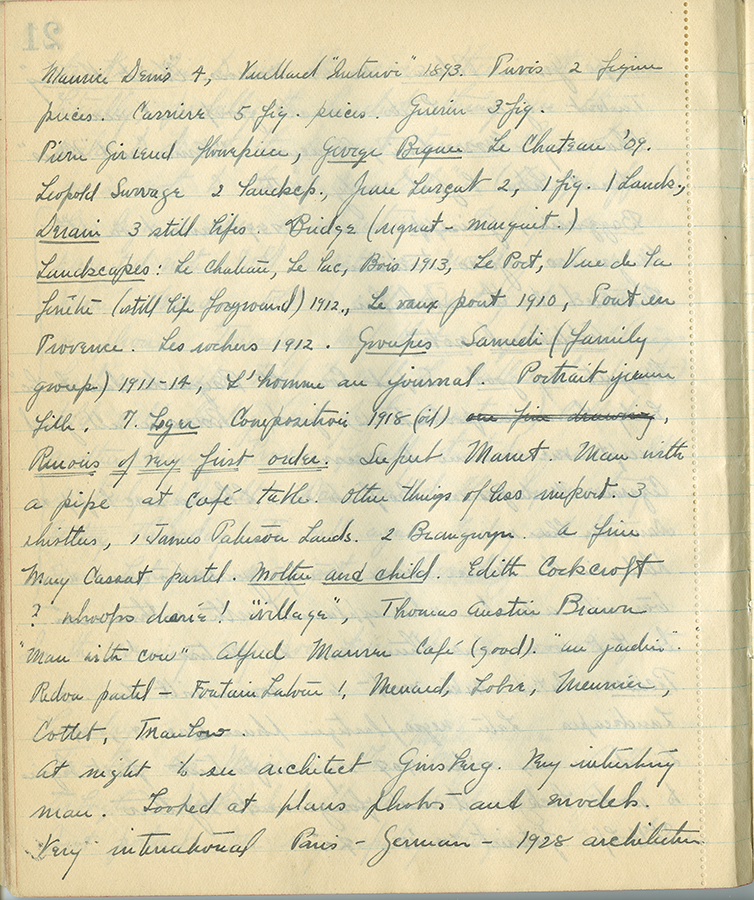 Maurice Denis 4, Vuillard "Interior" 1893. Puvis 2 figure
pieces. Carriere 5 fig. pieces. Guerin 3 fig.
Pierre Girieud flowerpiece, George Braque Le Chateau '09.
Leopold Survage 2 landscp., Jean Lurçat 2, 1 fig. 1 Lands.,
Derain 3 still lifes. Bridge (signat - marquet.)
Landscapes: Le chateau, Le Lac, Bois 1913, Le Port, Vue de la
fenêtre (still life foreground) 1912., Le vieux pont 1910, Pont en
Provence. Les rochers 1912. Groupes Samedi (family
group) 1911-14, L'homme au journal. Portrait jeune
fille. 7. Leger Composition 1918 (oil) one fine drawing,
Renoirs of very first order. Superb Manet. Man with
a pipe at café table. Other things of less import. 3
whistlers, 1 James Paterson Lands. 2 Brangwyn. A fine
Mary Cassat pastel. Mother and child. Edith Cockcroft
? whoops dearie! "village", Thomas Austin Brown
"Man with cow" Alfred Maurer Café (good). "au jardin".
Redon pastel - Fantin Latour !, Menard, Lobre, Meunier,
Cottet, Thaulow.
At night to see architect Ginsberg. Very interesting
man. Looked at plans photos and models.
Very international Paris - German - 1928 architecture